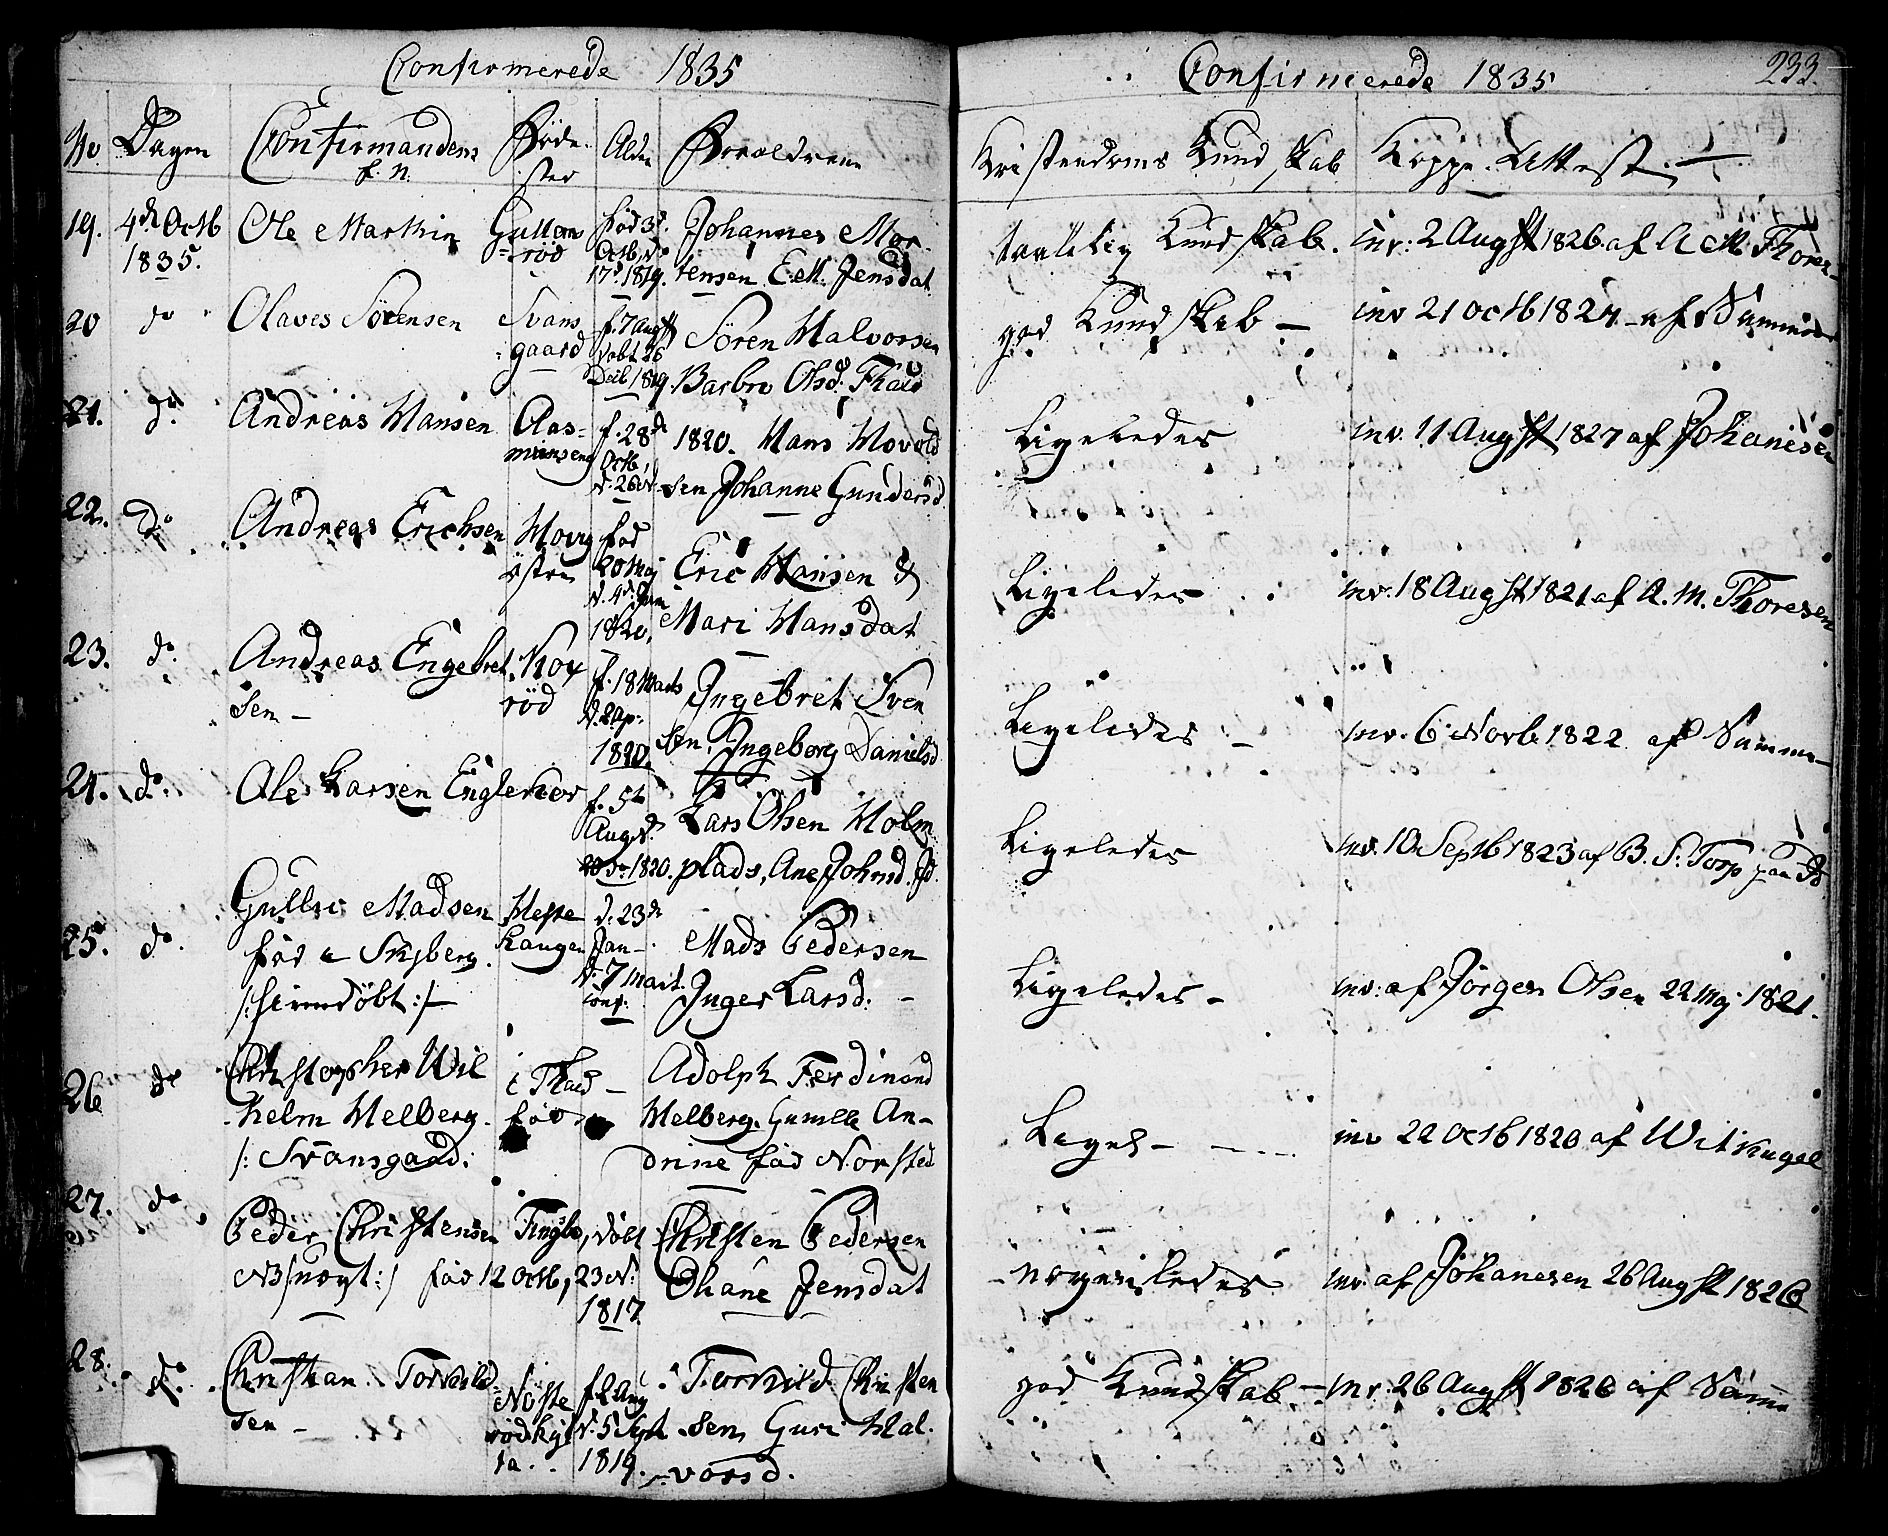 Confirmerede 1835
No Dagen Confirmandens f. n. Föde-sted Alder Forældrene
19. 4de Octb 1835. Ole Marthin Gullerröd
fød 3d Octb, d. 17d. 1819.
Johannes Mor-
tensen E. M. Jensdat.
20 do Olaves Sörensen Svans
gaard
f. 7 Augst döbt 26 Decb 1819.
Sören Halvorsen
Barbro Olsd. Thrd
21. do. Andreas Hansen Aas-
f. 28d Octb, d. 26 d
1820. Hans Hovold
sen Johanne Gundersd
22. do Andreas Erichsen Hovg
østre
fød
20 Maj
d. 4d. Jun
1820.
Eric Hansen &
Mari Hansdat
23. do. Andreas Engebret
sen - röd
f. 18 Marts
d. 2 Ap:
1820.
Ingebret Sven
sen. Ingeborg Danielsd
24. do. Ole Larsen Englekor
f. 5te
Aug d.
20 do 1820.
Lars Olsen Holm
plads, Ane Johnsd.
25. do. Gulbr. Madsen
fød a Skyberg.
/:hiemdöbt:/
Heste
haugen
d. 23d
Jan-
d. 7 Mart.
conf.
Mads Pedersen
Inger Larsd. -
26 do Christopher Wil
helm Melberg.
/: Svansgaard:
i Thrd -
fød
Adolph Ferdinand
Melberg. Gunilla An-
drine fød Norsted
27. do Peder Christensen Tingbo, döbt
NB /uægt:/ fød 12 Octb, 23 d.
1817.
Christen Pedersen
Oliane Jensdat
28. do. Christian Torkild-
sen -
Nöste
rödhyt
ta.
f. 2 Aug
d. 5 Sept
1819.
Torkild Christen
sen, Guri Hal-
vorsd.
Confirmerede 1835 233.
Kristendoms Kundskab Koppe Attest.
taalelig Kundskab. inv: 2 Augst 1826. af A M Thores-
god Kundskab - inv 21 Octb 1827 - af Samme
Ligeledes inv. 11 Augst 1827 af Johanisen
Ligeledes inv. 18 Augst 1821 af A. M. Thoresen
Ligeledes - inv. 6 Novb 1822 af Samme
Ligeledes inv. 10 Septb 1823 af B. S: Torp paa
Ligeledes - inv: af Jörgen Olsen 22 Mg. 1821.
Ligel - inv 22 Octb 1820 af Witkugel
- nogenledes inv. af Johanesen 26 Augst 1826
god Kundskab - inv. 26 Augst 1826 af Samme